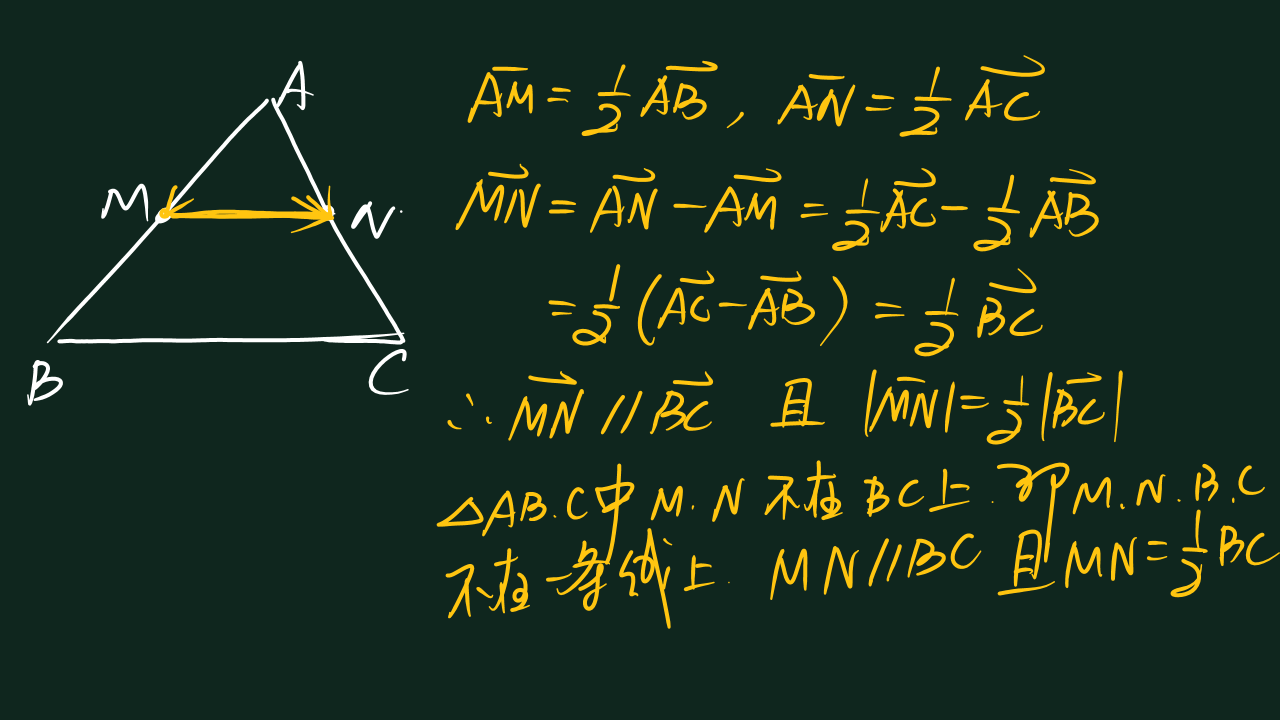 A
M
N
B
C
AM = 1/2 AB, AN = 1/2 AC
MN = AN - AM = 1/2 AC - 1/2 AB
= 1/2 (AC - AB) = 1/2 BC
∴ MN // BC 且 |MN| = 1/2 |BC|
△AB.C中 M.N 不在 BC上.即M.N.B.C
不在一条线上. MN//BC 且MN=1/2BC